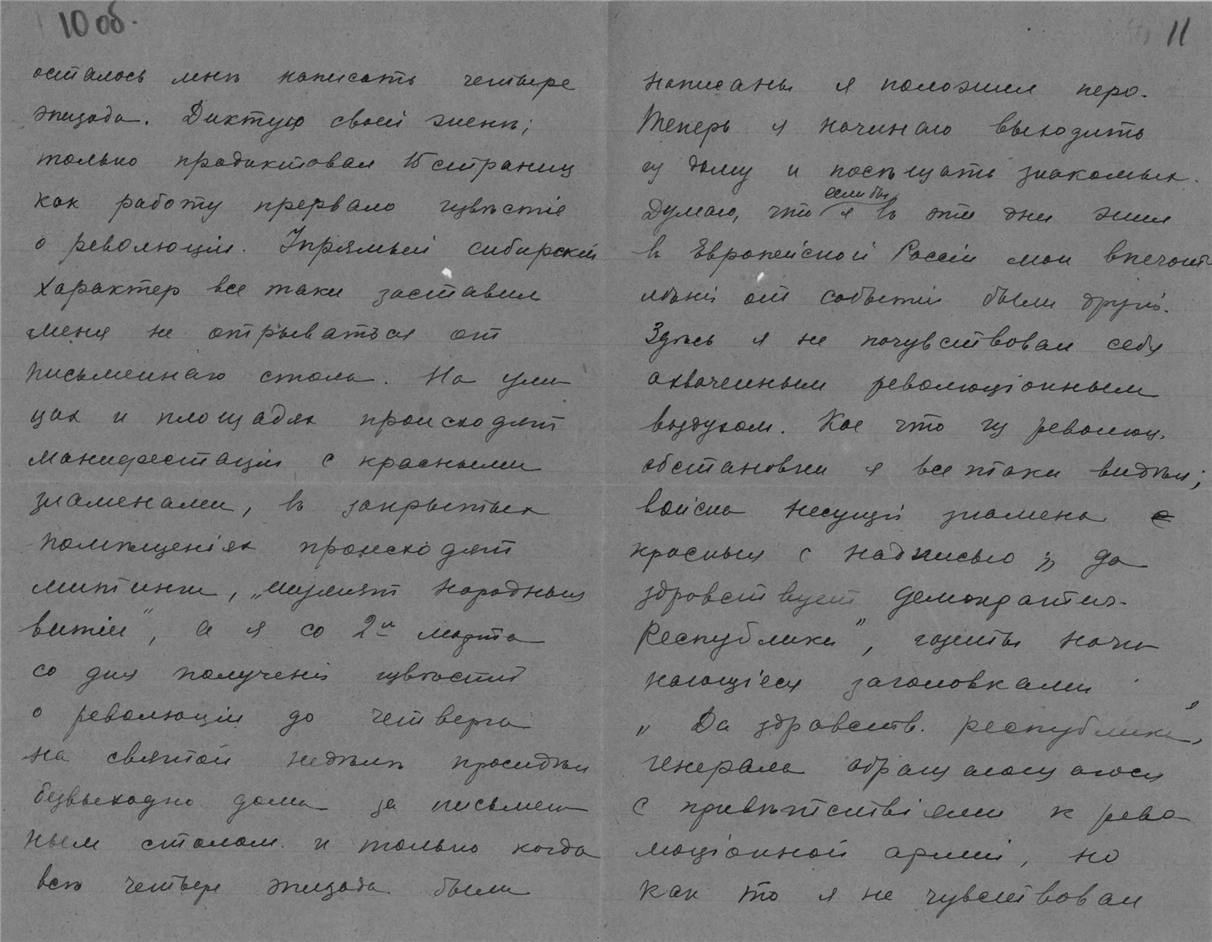 10 об.
осталось мнѣ написать четыре
эпизода. Диктую своей женѣ;
только продиктовал 15 страниц
как работу прервало извѣстіе
о революціи. Упрямый сибирскій
характер все таки заставил
меня не отрываться от
письменнаго стола. На ули
цах и площадях происходят
манифестаціи с красными
знаменами, в закрытых
помѣщеніях происходят
митинги, „шумят народныя
витіи", а я со 2го марта
со дня полученія извѣстія
о революціи до четверга
на святой недѣлѣ просидѣл
безвыходно дома за письмен
ным столом и только когда
всѣ четыре эпизода были
11
написаны я положил перо.
Теперь я начинаю выходить
из дому и посѣщать знакомых.
если бы
Думаю, что я в эти дни жил
в Европейской Россіи мои впечат
лѣнія от событій были другія.
Здѣсь я не почувствовал себя
охваченным революціонным
воздухом. Кое что из революц.
обстановки я все таки видѣл;
войска несущія знамена
красныя с надписью „да
здравствует демократич.
Республика", газеты начи
нающіеся заголовками
„Да здравств. республика",
генерала обращающагося
с привѣтствіями к рево
люціонной арміи, но
как то я не чувствовал